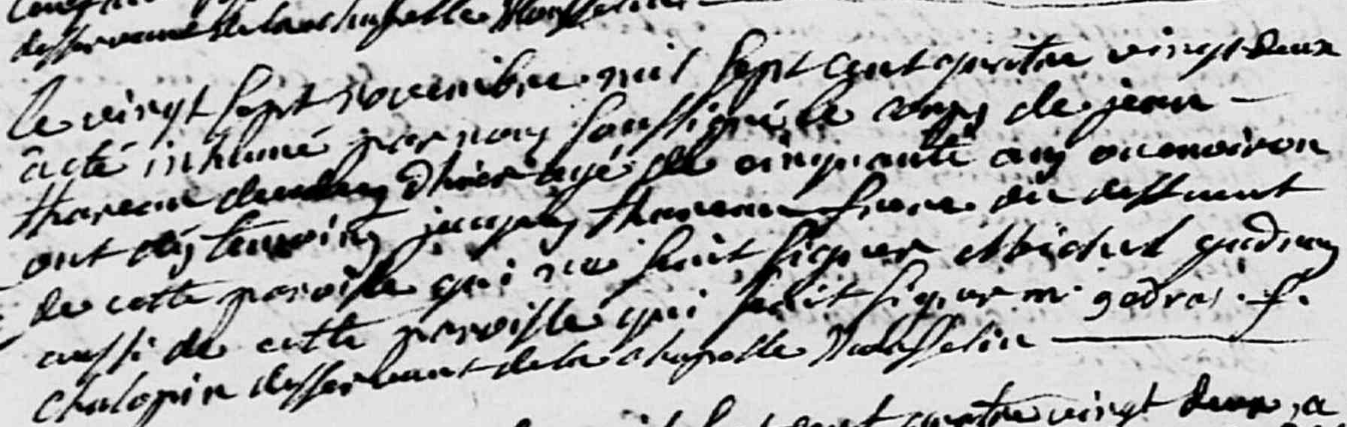 desservant de la chapelle Housselin
le vingt sept novembre mil sept cent quatre vingt deux
a été inhumé par nous soussigné, le corps de jean
thareau décédé d'hier agé de cinquante ans ou environ
ont été temoins jacques thareau frere du deffunt
de cette paroisse qui ne scait signer et Michel gadras
aussi de cette paroisse qui scait signer m. gadras. f.
Chalopin desservant de la chapelle Housselin
quatre vingt deux, a